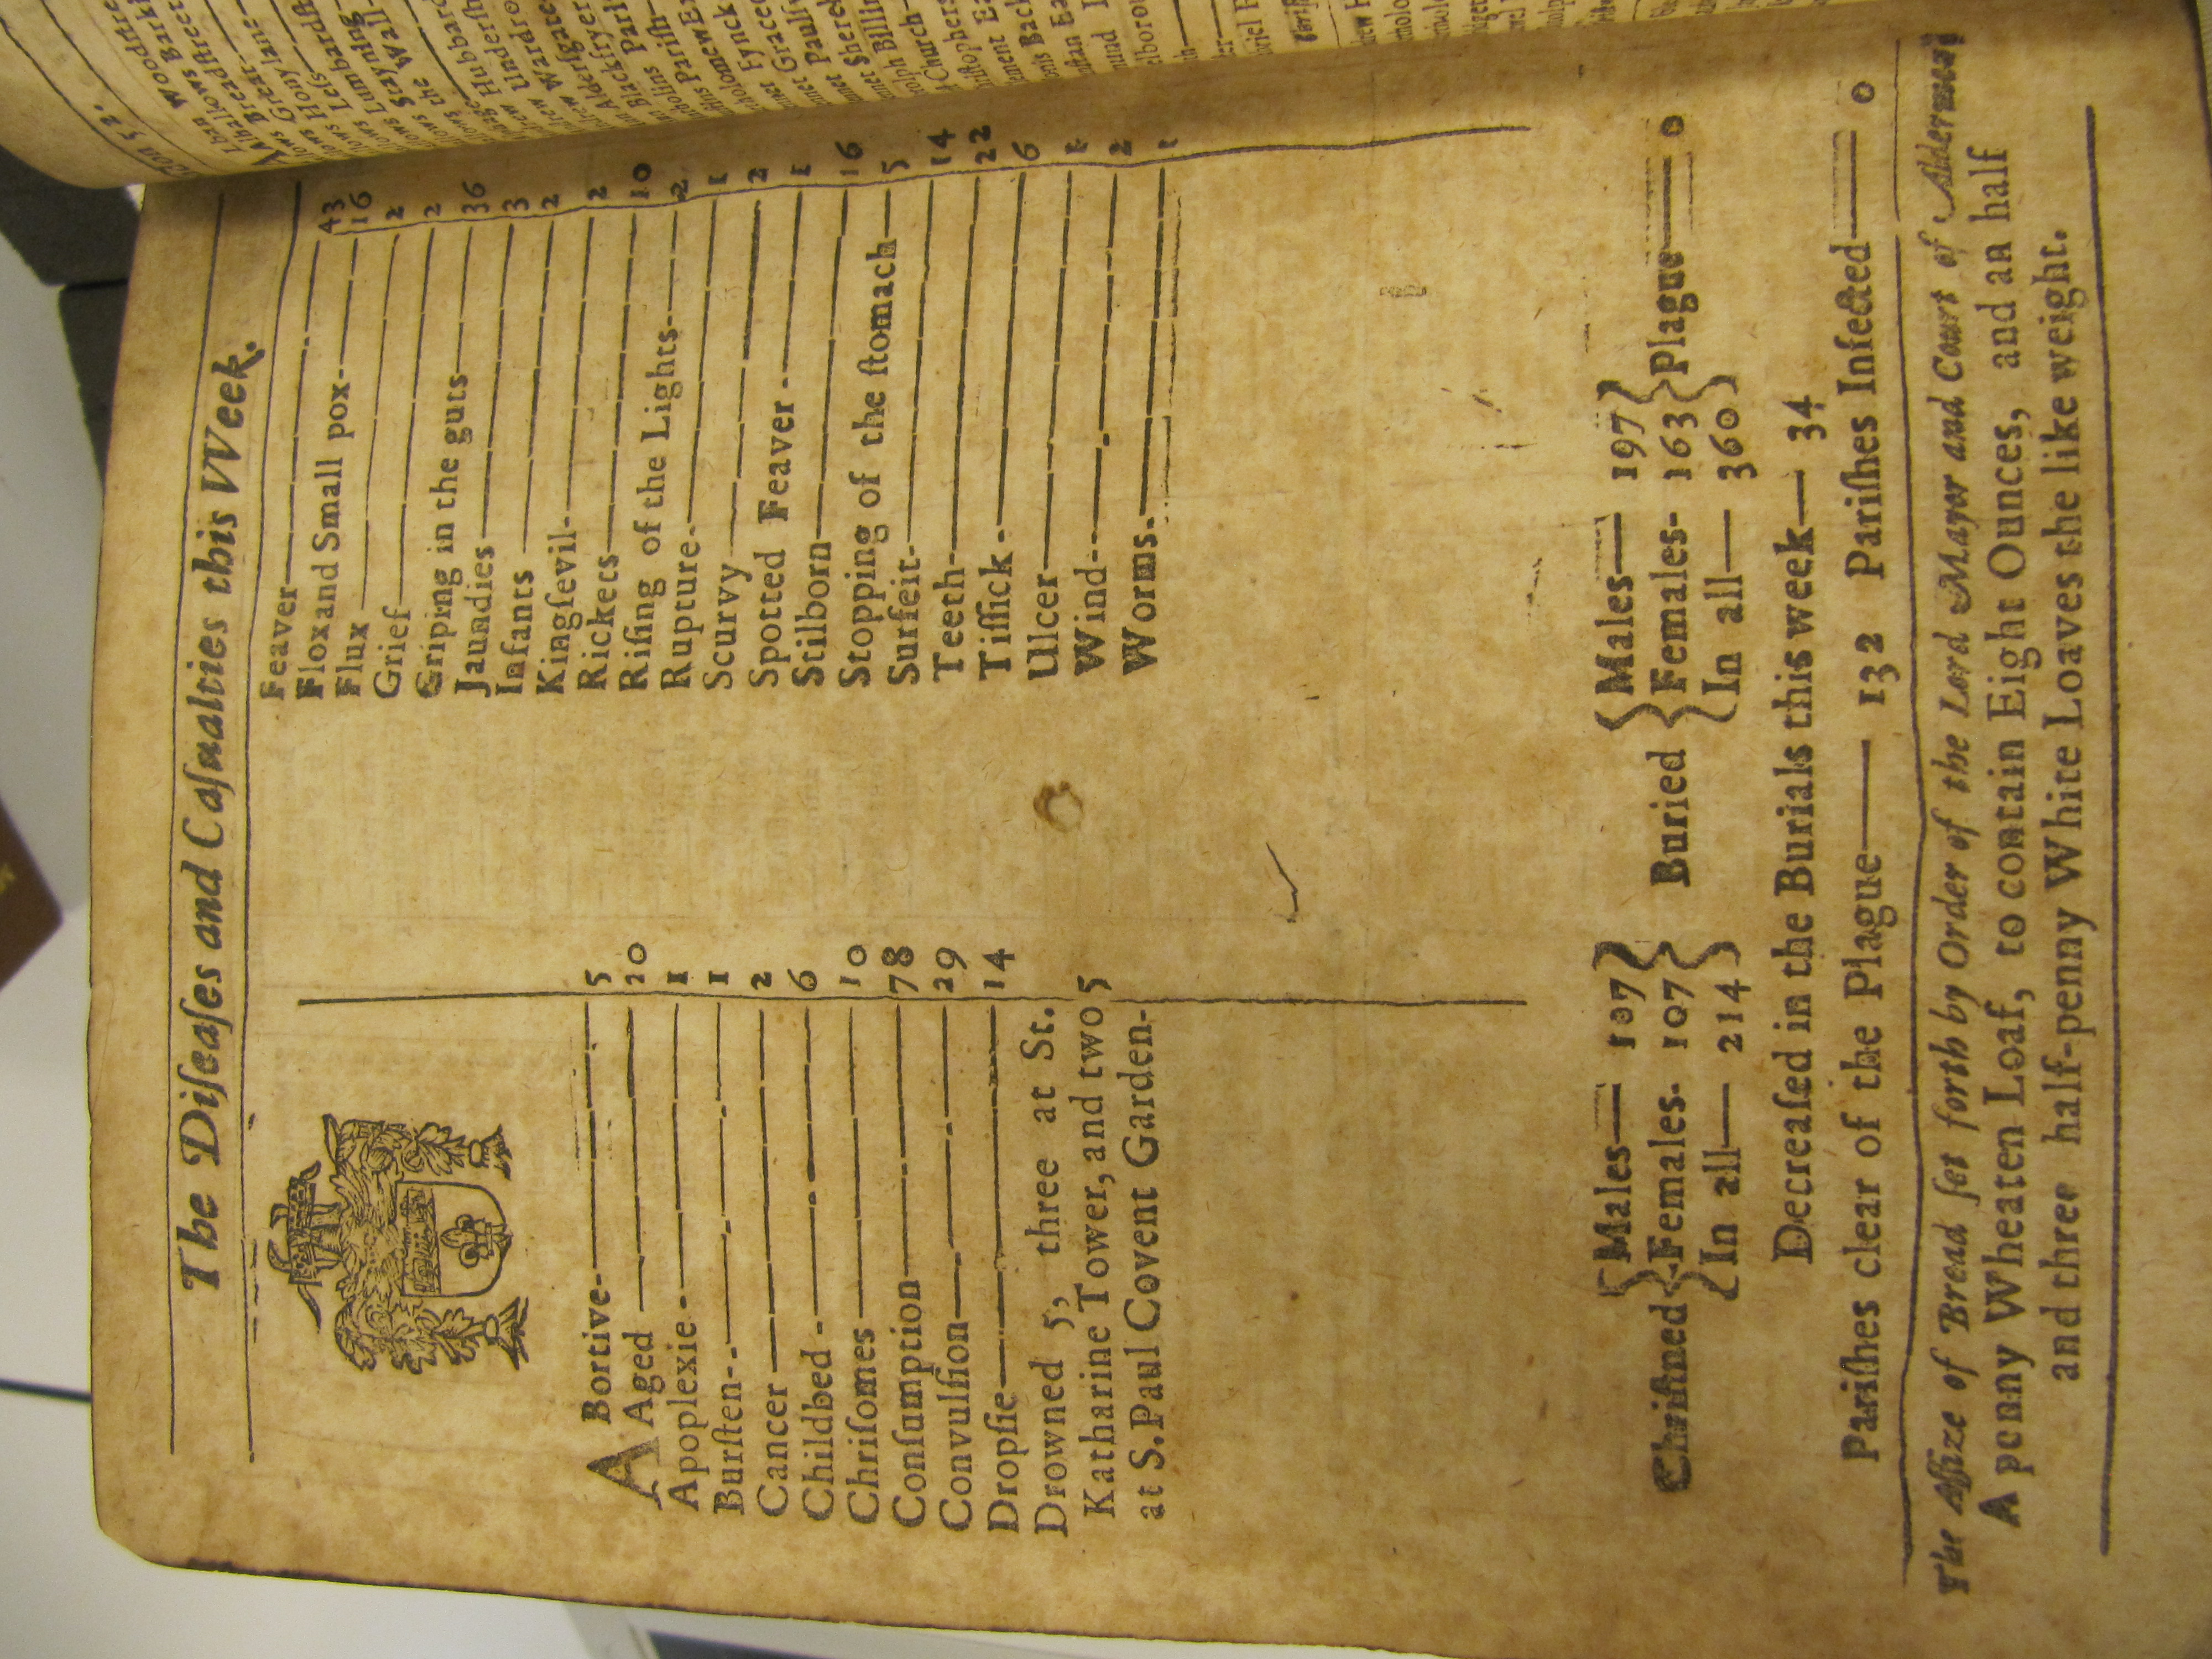 The Diſeaſes and Caſualties this VVeek.
ABortive 5
Aged 20
Apoplexie 1
Burſten 1
Cancer 2
Childbed 6
Chriſomes 10
Conſumption 78
Convulſion 29
Dropſie 14
Drowned 5, three at St.
Katharine Tower, and two
at S. Paul Covent Garden 5
Feaver 43
Flox and Small pox 16
Flux 2
Grief 2
Griping in the guts 36
Jaundies 3
Infants 2
Kingſevil 2
Rickets 10
Riſing of the Lights 2
Rupture 1
Scurvy 2
Spotted Feaver 1
Stilborn 16
Stopping of the ſtomach 5
Surfeit 14
Teeth 22
Tiſſick 6
Ulcer 1
Wind 2
Worms 1
Chriſtned { Males — 107 Females - 107 In all — 214 }
Buried { Males — 197 Females - 163 In all — 360 } Plague — 0
Decreaſed in the Burials this week — 34
Pariſhes clear of the Plague — 132 Pariſhes Infected — 0
The Aſſize of Bread ſet forth by Order of the Lord Mayor and Court of Aldermen,
A penny Wheaten Loaf, to contain Eight Ounces, and an half
and three half-penny White Loaves the like weight.